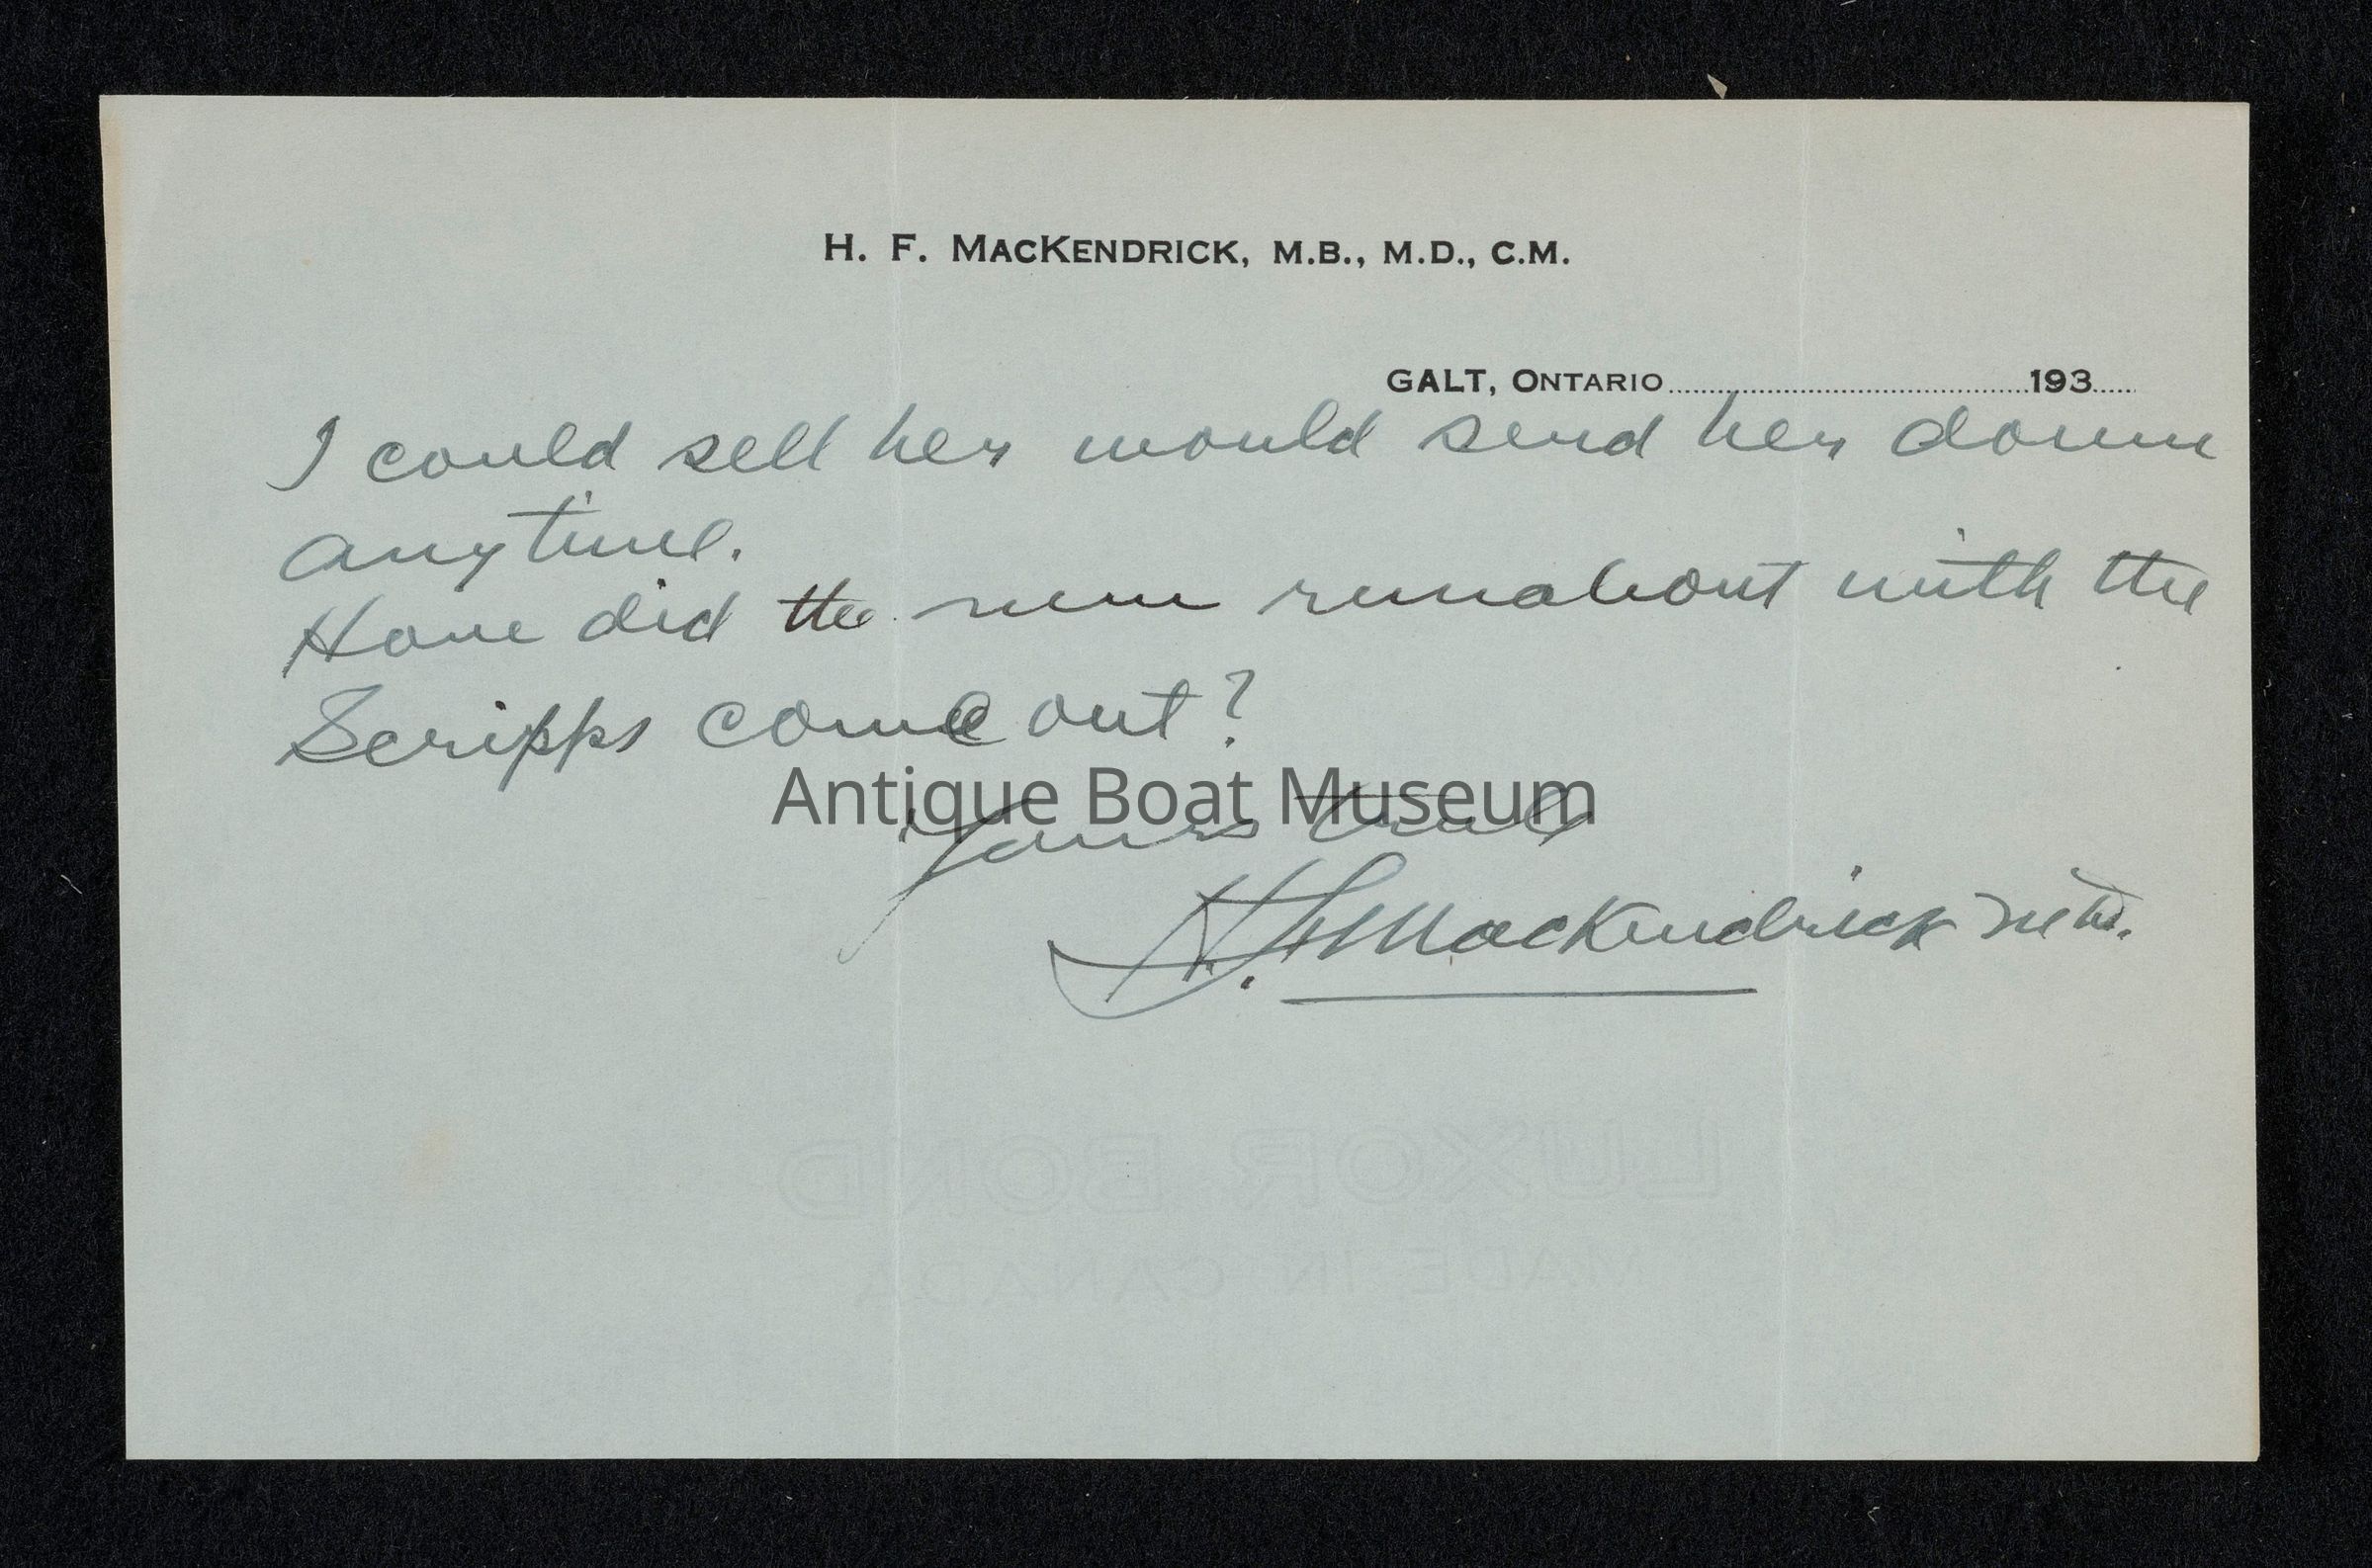 H. F. MACKENDRICK, M.B., M.D., C.M.
GALT, ONTARIO..............................193......
I could sell her would send her down
anytime.
How did the new runabout with the
Scripps come out?
Antique Boat Museum
Yours truly
H. F. MacKendrick M.D.
LUXOR BOND
MADE IN CANADA